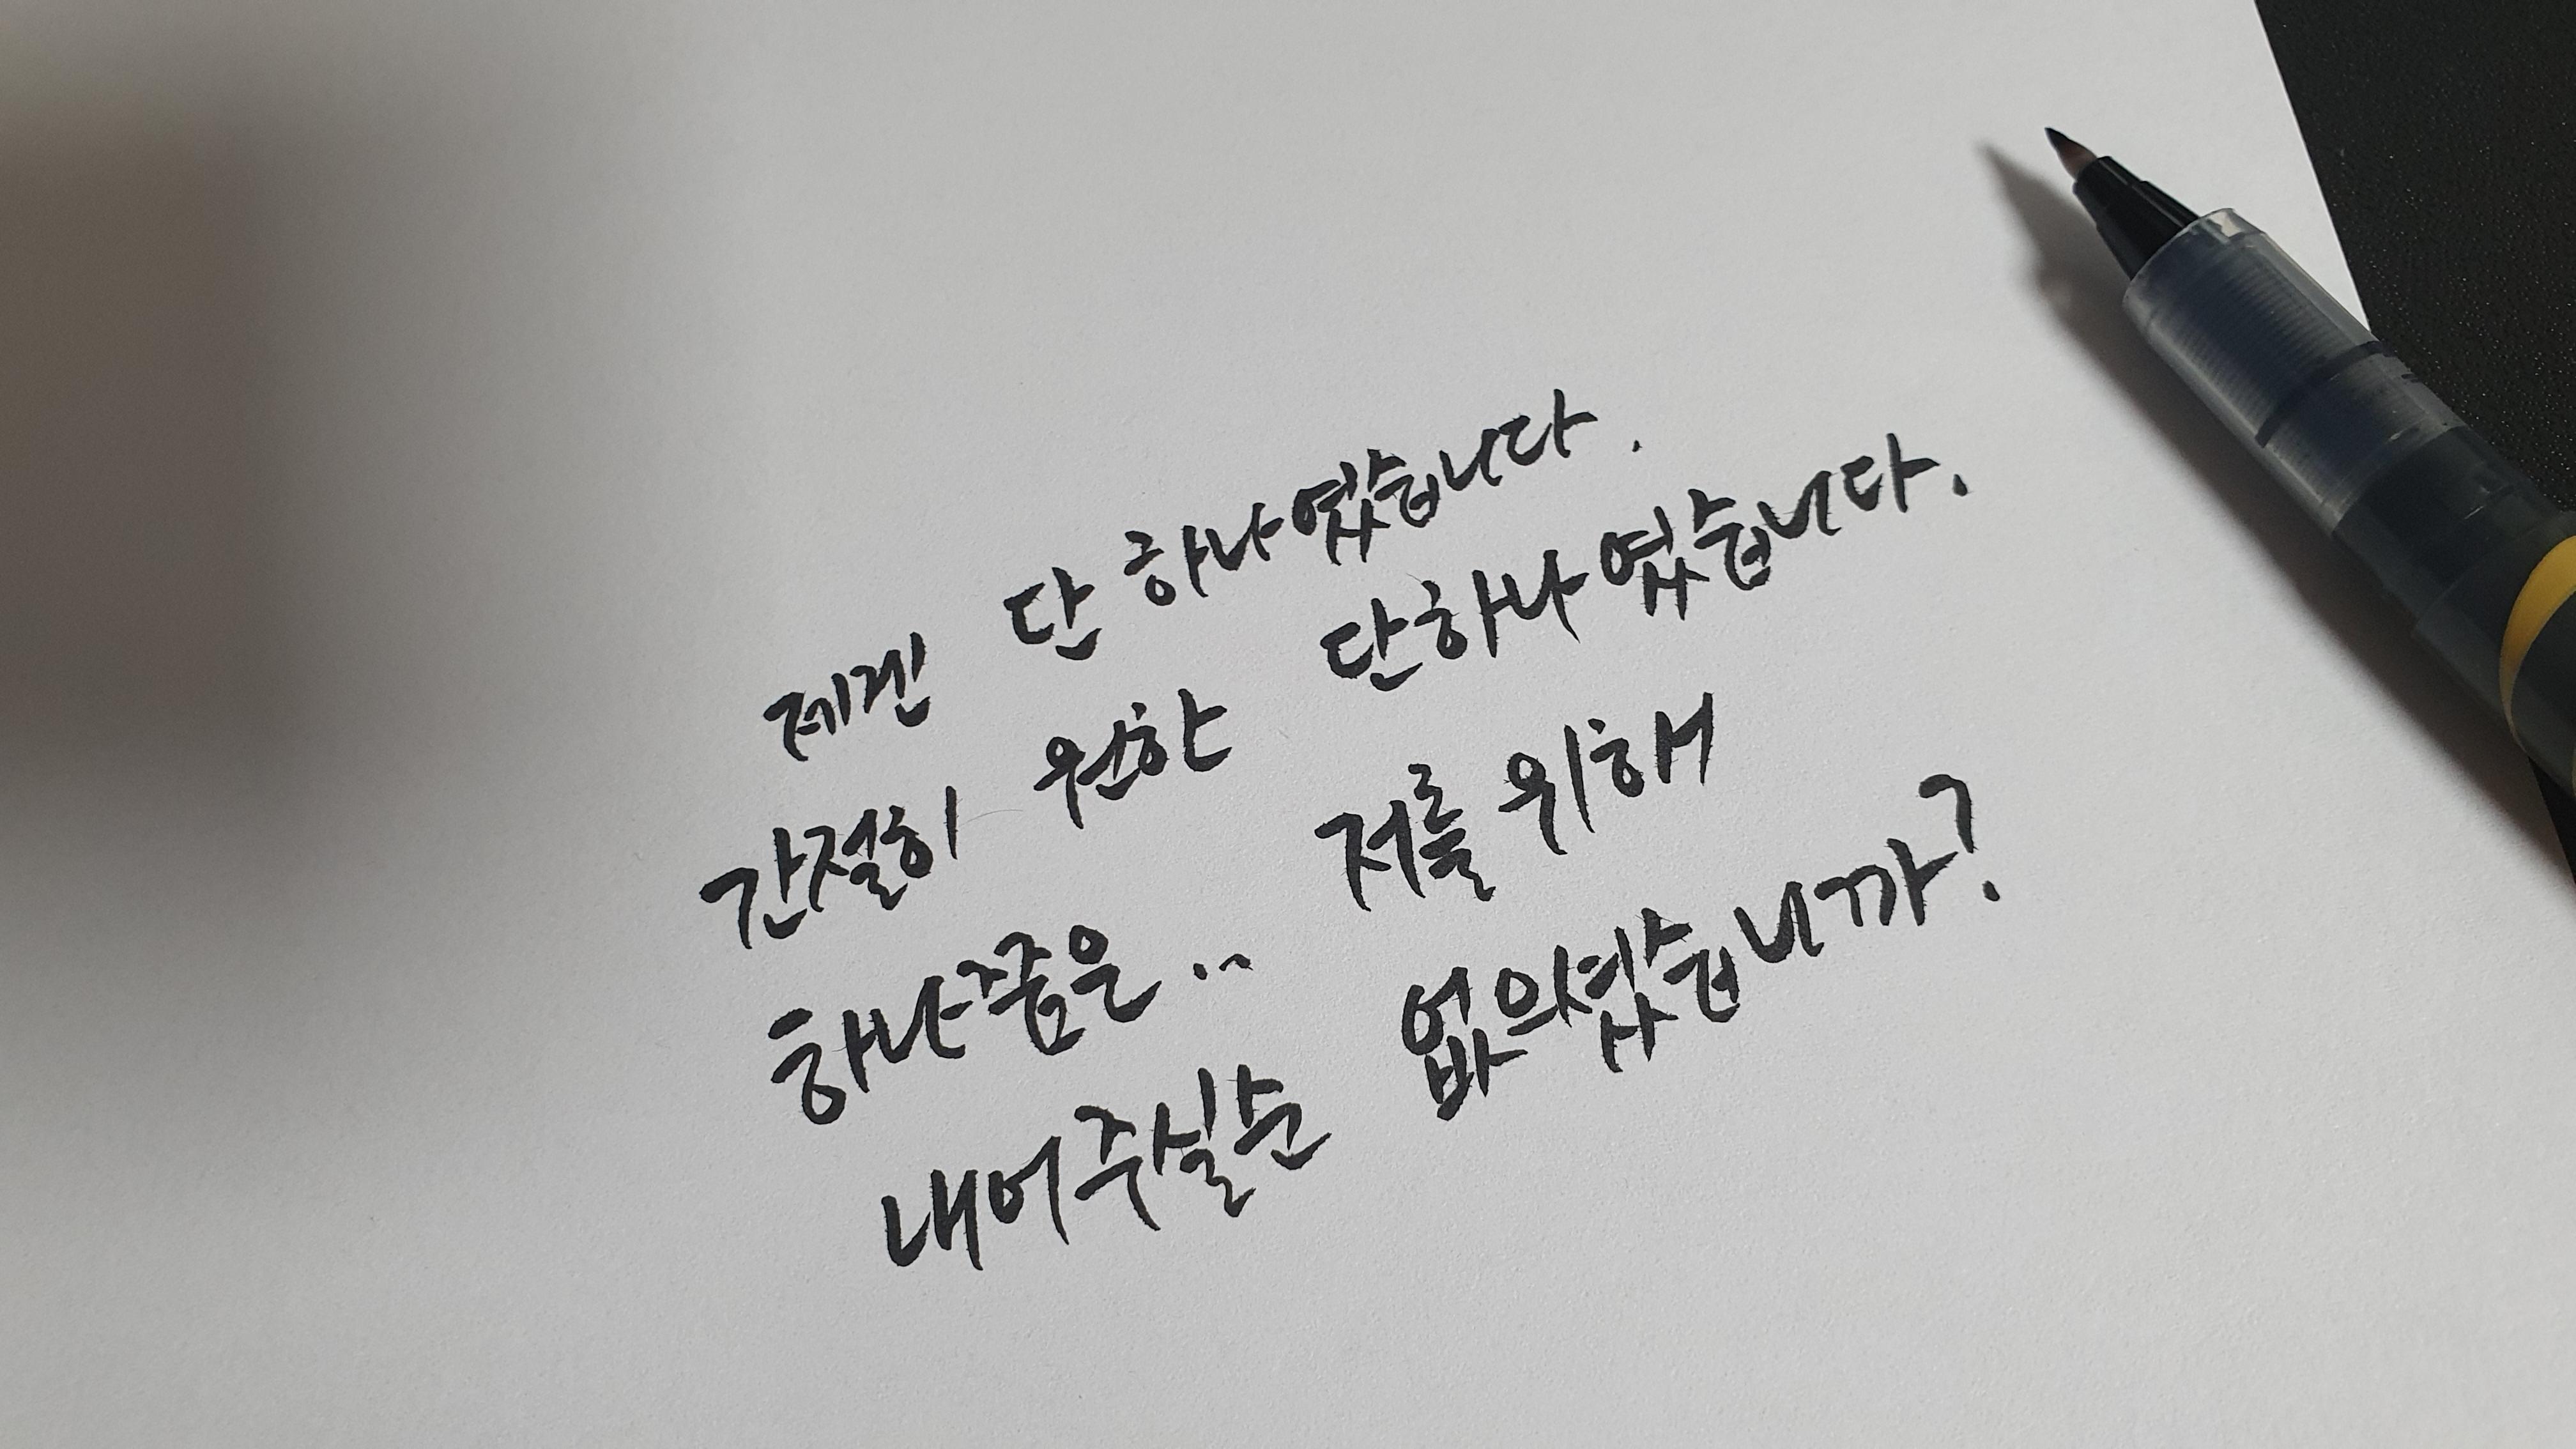 제겐 단 하나였습니다.
간절히 원한 단하나였습니다.
하나쯤은.. 저를 위해
내어주실순 없의셨습니까?